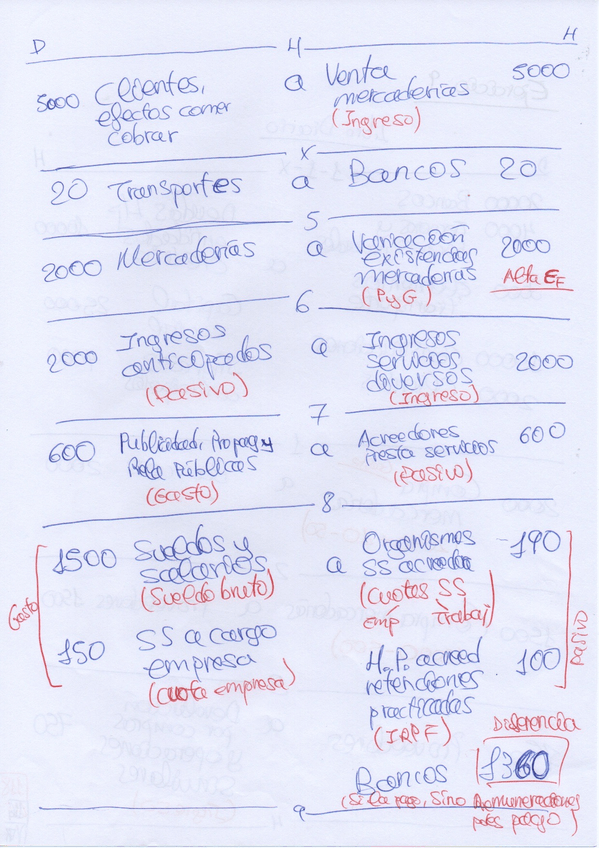 D 4 H
5000 Clientes, a Venta 5000
efectos comer mercaderías
cobrar (Ingreso)
x
20 Transportes a Bancos 20
5
2000 Mercaderías a Variación 2000
existencias
mercaderías Alta EF
(PyG)
6
2000 Ingresos a Ingresos 2000
anticipados servicios
(Pasivo) diversos
(Ingreso)
7
600 Publicidad, Propag y a Acreedores 600
Rela Públicas Presta servicios
(Gasto) (Pasivo)
8
1500 Sueldos y a Organismos 190
salarios SS acreedora
(Sueldo bruto) (cuotas SS
emp trabaj)
Gasto
150 SS a cargo H.P. acreed 100
empresa retenciones
(cuota empresa) practicadas
(IRPF)
Pasivo
Diferencia
Bancos 1360
(Si la pago, sino Remuneraciones
pdes pago)
9